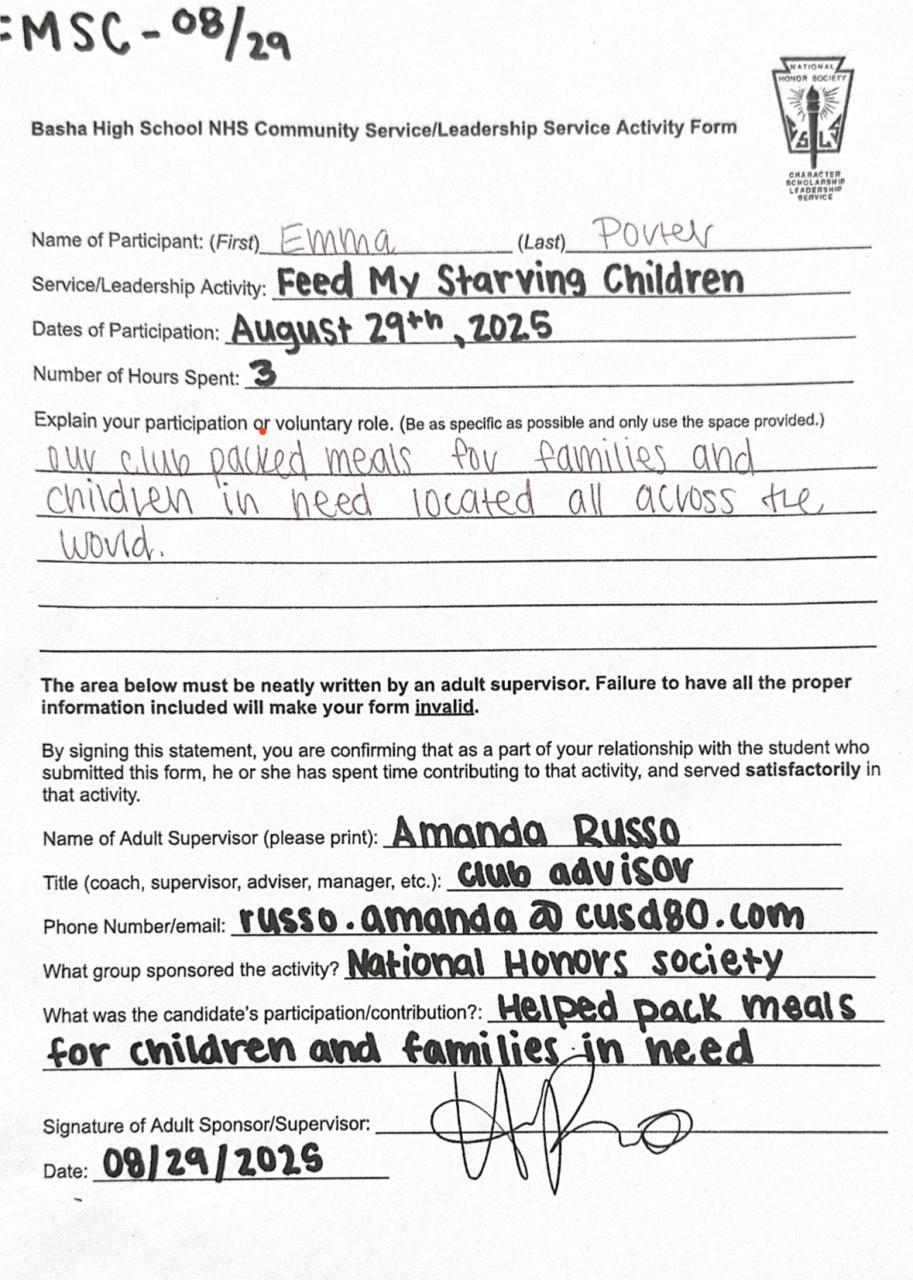 :MSC - 08/29
NATIONAL
HONOR SOCIETY
S L
CHARACTER
SCHOLARSHIP
LEADERSHIP
SERVICE
Basha High School NHS Community Service/Leadership Service Activity Form
Name of Participant: (First) Emma (Last) Porter
Service/Leadership Activity: Feed My Starving Children
Dates of Participation: August 29th, 2025
Number of Hours Spent: 3
Explain your participation or voluntary role. (Be as specific as possible and only use the space provided.)
our club packed meals for families and
children in need located all across the
world.
The area below must be neatly written by an adult supervisor. Failure to have all the proper
information included will make your form invalid.
By signing this statement, you are confirming that as a part of your relationship with the student who
submitted this form, he or she has spent time contributing to that activity, and served satisfactorily in
that activity.
Name of Adult Supervisor (please print): Amanda Russo
Title (coach, supervisor, adviser, manager, etc.): club advisor
Phone Number/email: russo.amanda@cusd80.com
What group sponsored the activity? National Honors society
What was the candidate's participation/contribution?: Helped pack meals
for children and families in need
Signature of Adult Sponsor/Supervisor:
Date: 08/29/2025